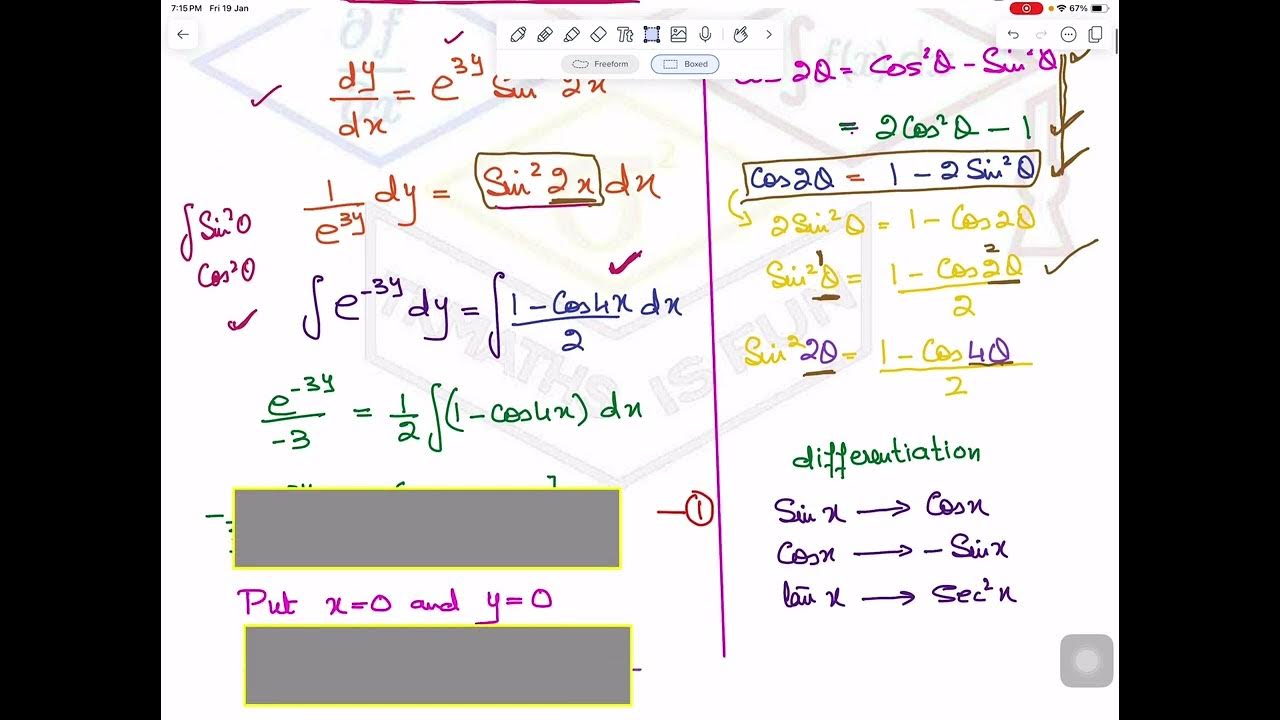 7:15 PM Fri 19 Jan
67%
Freeform
Boxed
dy/dx = e^3y Sin² 2x
1/e^3y dy = Sin² 2x dx
∫ Sin²θ
Cos²θ
∫ e^-3y dy = ∫ 1 - Cos4x / 2 dx
e^-3y / -3 = 1/2 ∫ (1 - cos4x) dx
— ①
Put x=0 and y=0
2θ = Cos²θ - Sin²θ
= 2Cos²θ - 1
Cos2θ = 1 - 2Sin²θ
2Sin²θ = 1 - Cos2θ
Sin²θ = 1 - Cos2θ / 2
1
2
Sin² 2θ = 1 - Cos4θ / 2
differentiation
Sin x → Cosx
Cosx → - Sinx
tan x → Sec²x
MATHS IS FUN